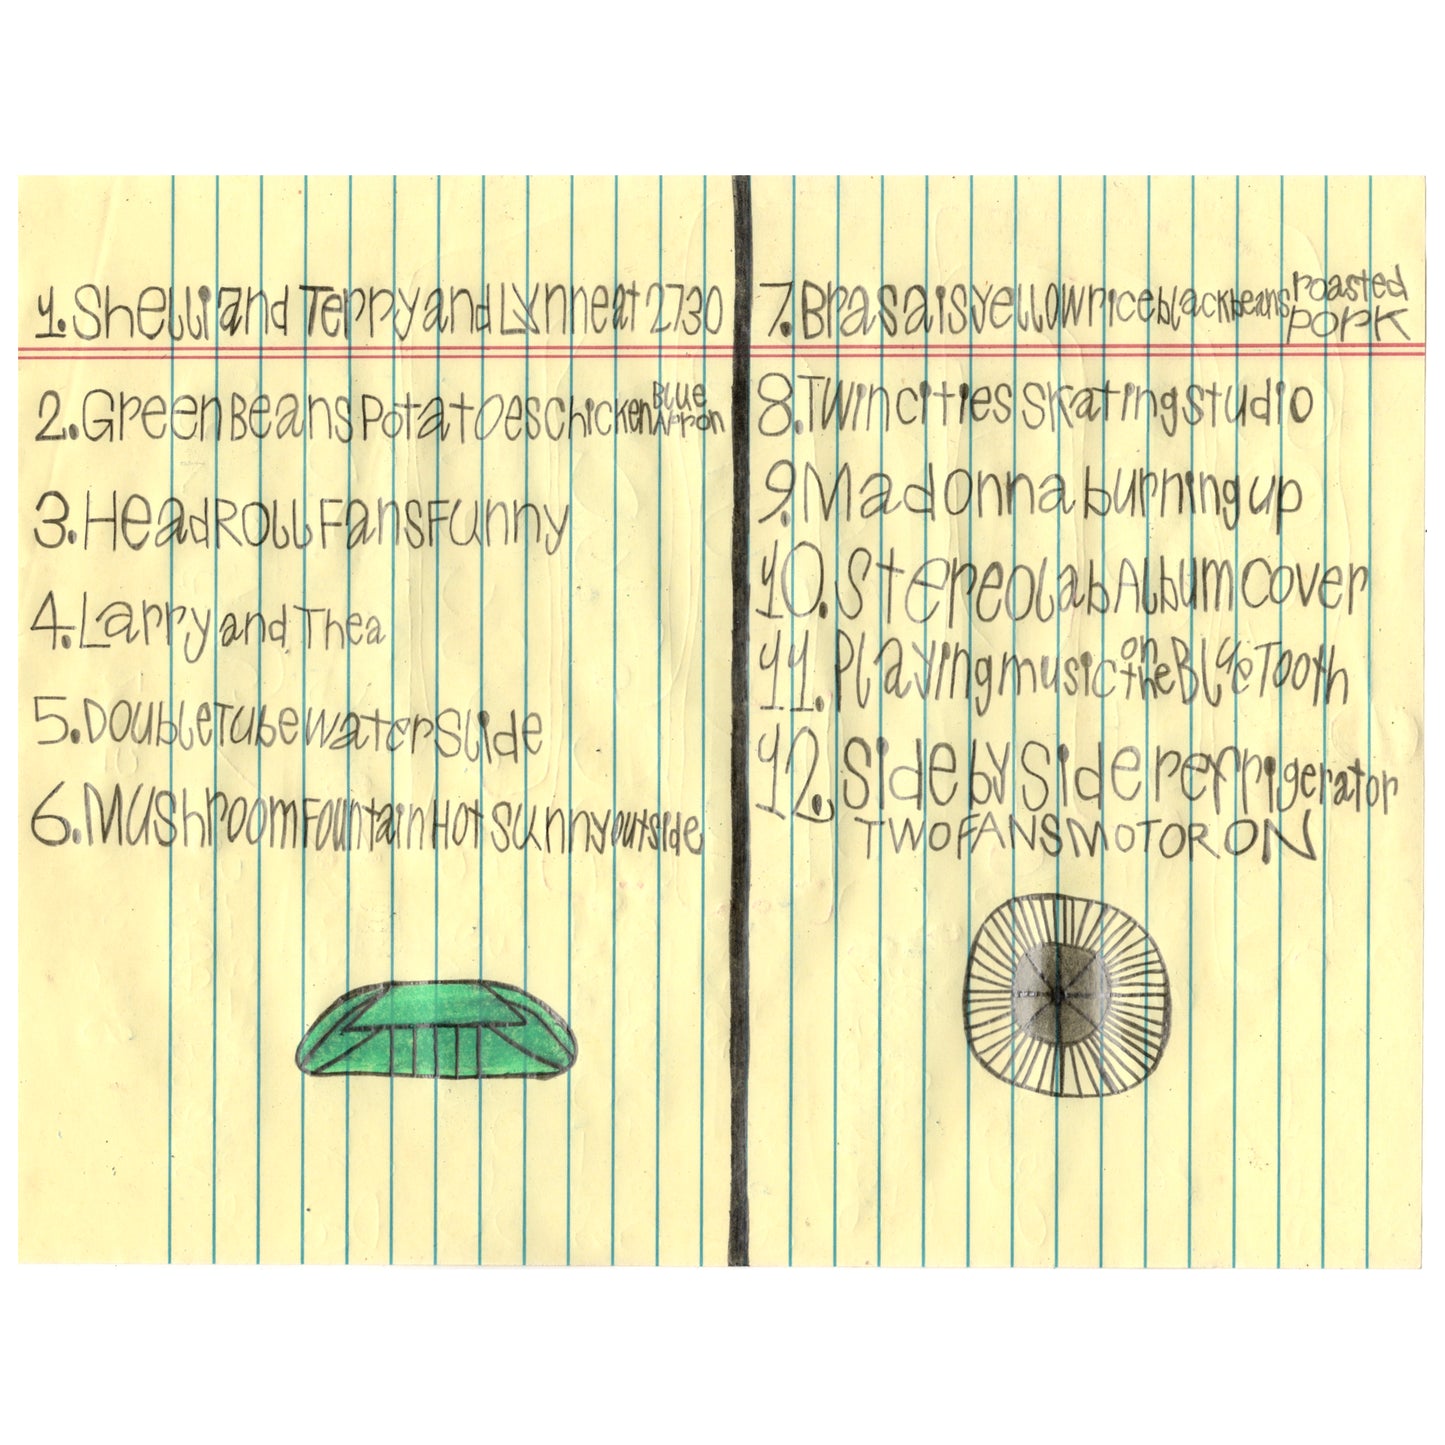 1. Shelli and Terry and Lynne at 2730
2. Green Beans Potatoes Chicken Blue Apron
3. Head Roll Fans Funny
4. Larry and Thea
5. Double Tube Water Slide
6. Mushroom Fountain Hot Sunny outside
7. Brasa is yellow rice black beans roasted pork
8. Twin cities skating studio
9. Madonna burning up
10. Stereolab Album Cover
11. Playing music on the Blue Tooth
12. Side by Side refrigerator
TWO FANS MOTOR ON